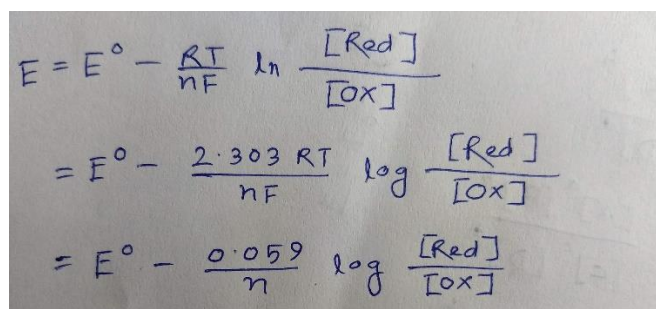 E = E° - RT/nF ln [Red]/[OX]
= E° - 2.303 RT/nF log [Red]/[OX]
= E° - 0.059/n log [Red]/[OX]